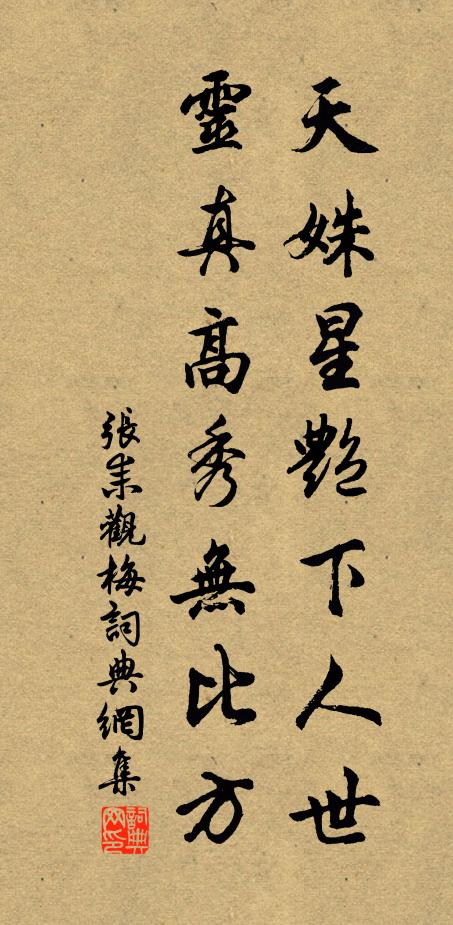 天姝星艷下人世
靈真高秀無比方
張耒觀梅詞典網集
詞典網印